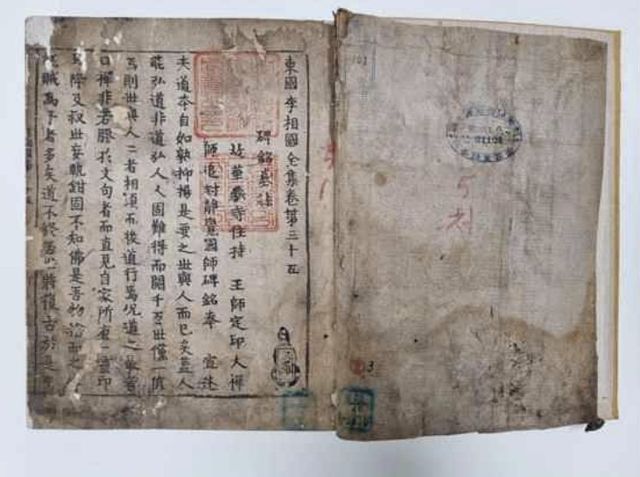 東國李相國全集卷第三十五
碑銘墓誌
故華嚴寺住持 王師定印大禪
師追封靜覺國師碑銘奉 宣述
夫道本自如孰抑揚是要之世與人而已矣盖人
能弘道非道弘人人固難得而間千百世僅一值
焉則世與人二者相須而後道行焉况道之最者
曰禪非若膠於文句者而直見自家所有心印
降及叔世妄執 固不知佛是吾物
賊爲子者多矣道不終否必將復古於是
5
3